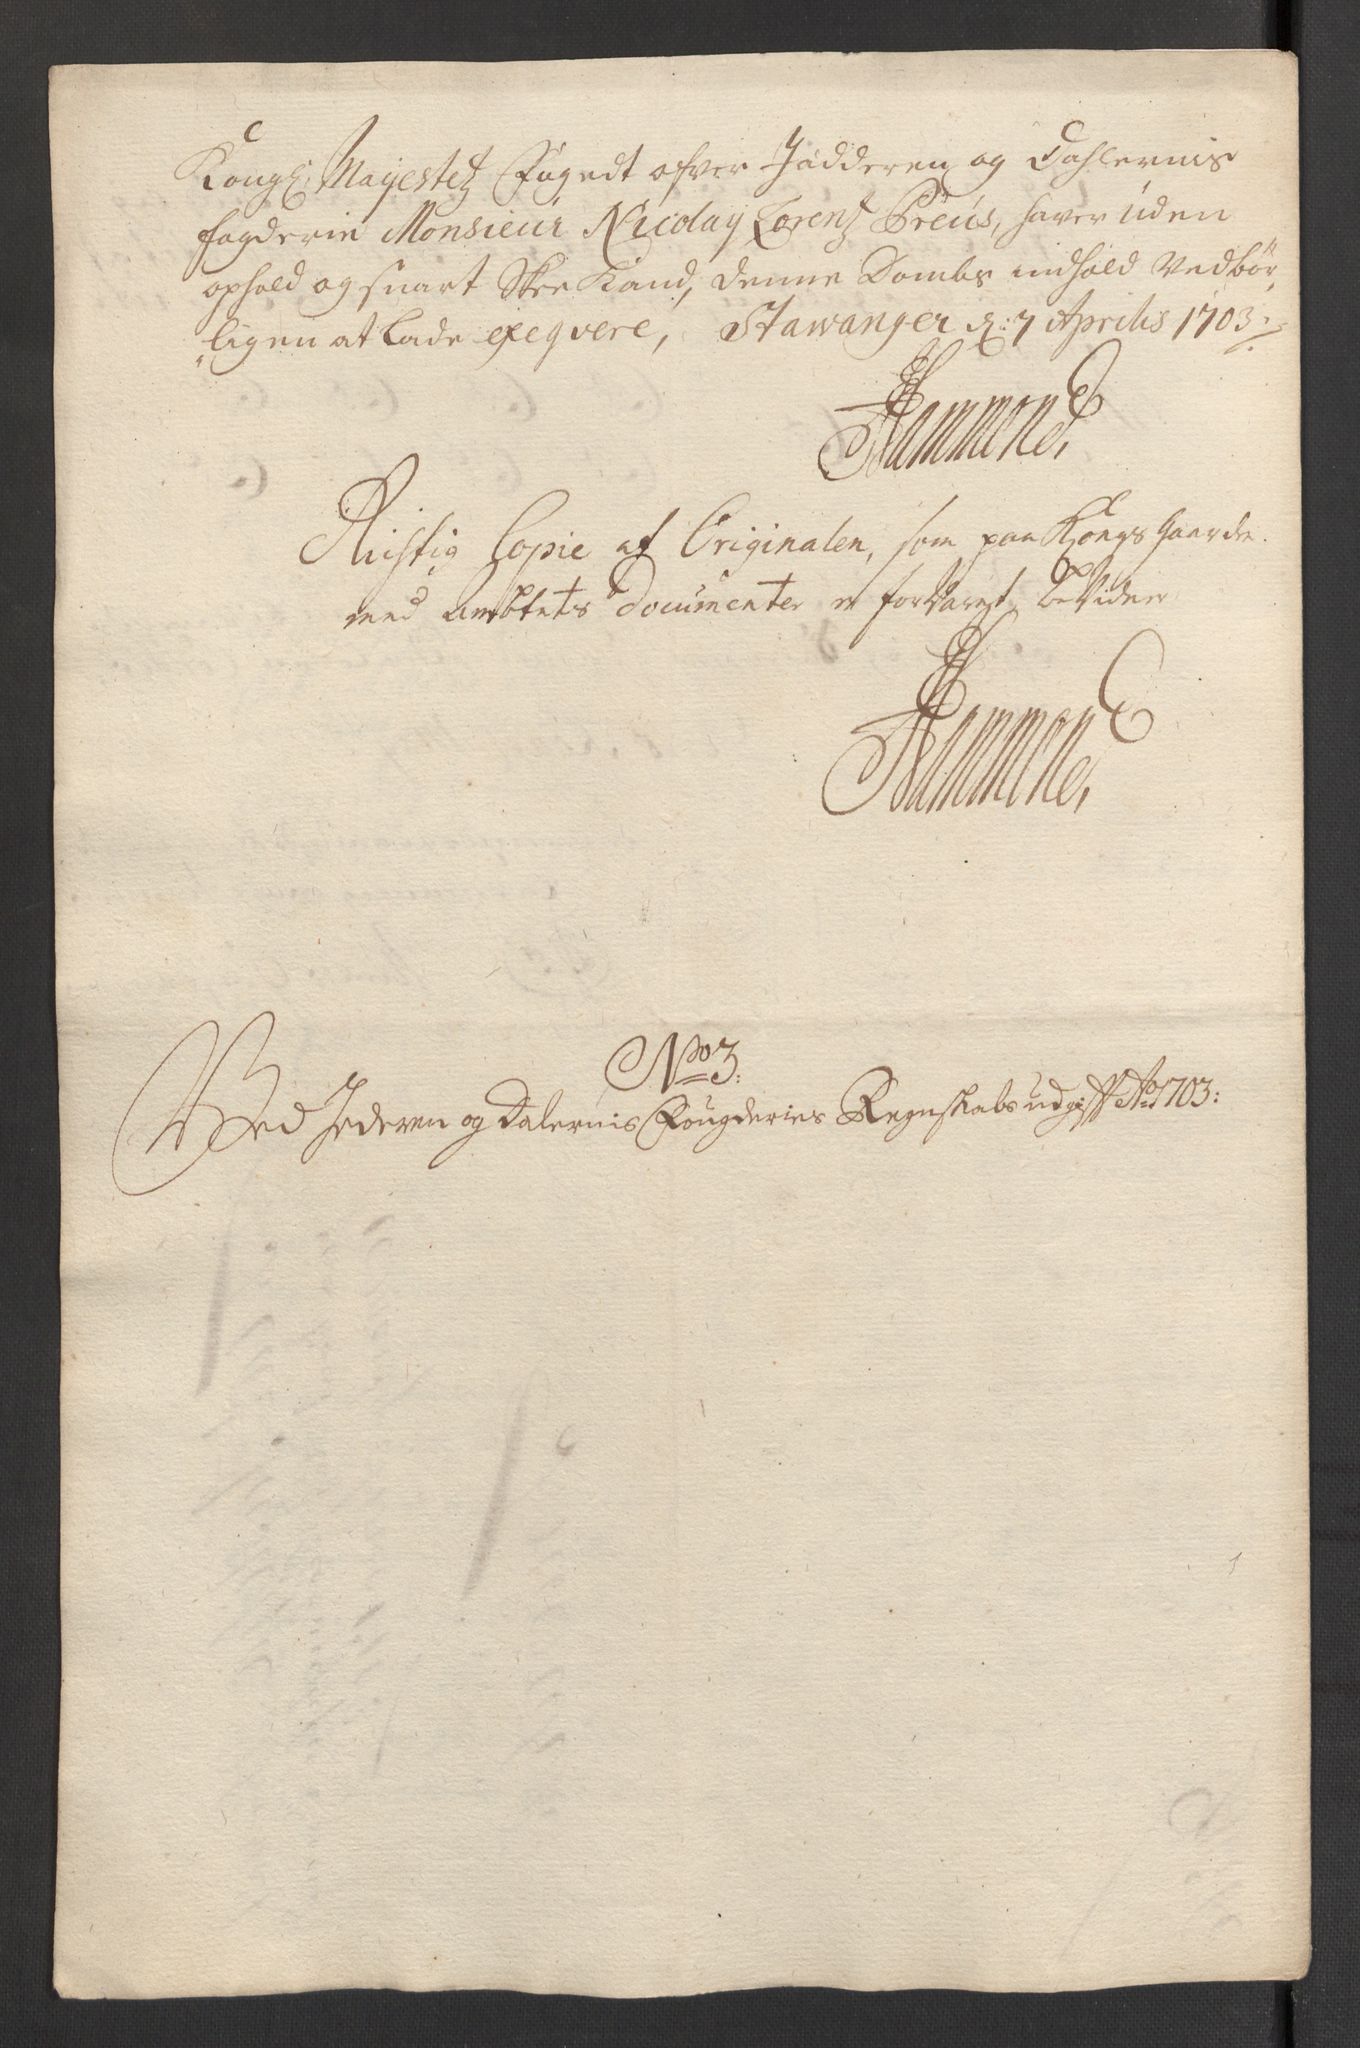 Kongl: Mayestetz Fogedt ofver Jædderen og Dahlernis
fogderie Monsieur Nicolay Lorentz Preus, haver uden
ophold og snart Skee Kand, denne Dombs indhold Vedbør„
„ligen at lade exeqvere, Stawanger d: 7 Aprilis 1703:/
Hammond,
Rigtig Copie af Originalen, som paa Kongs Gaarden
med ambtets Documenter er forvaret, bevidner
Hammond,
No 3:
Ved Jederen og Dalernis Fougderies Regnskabs udgift Ao 1703: